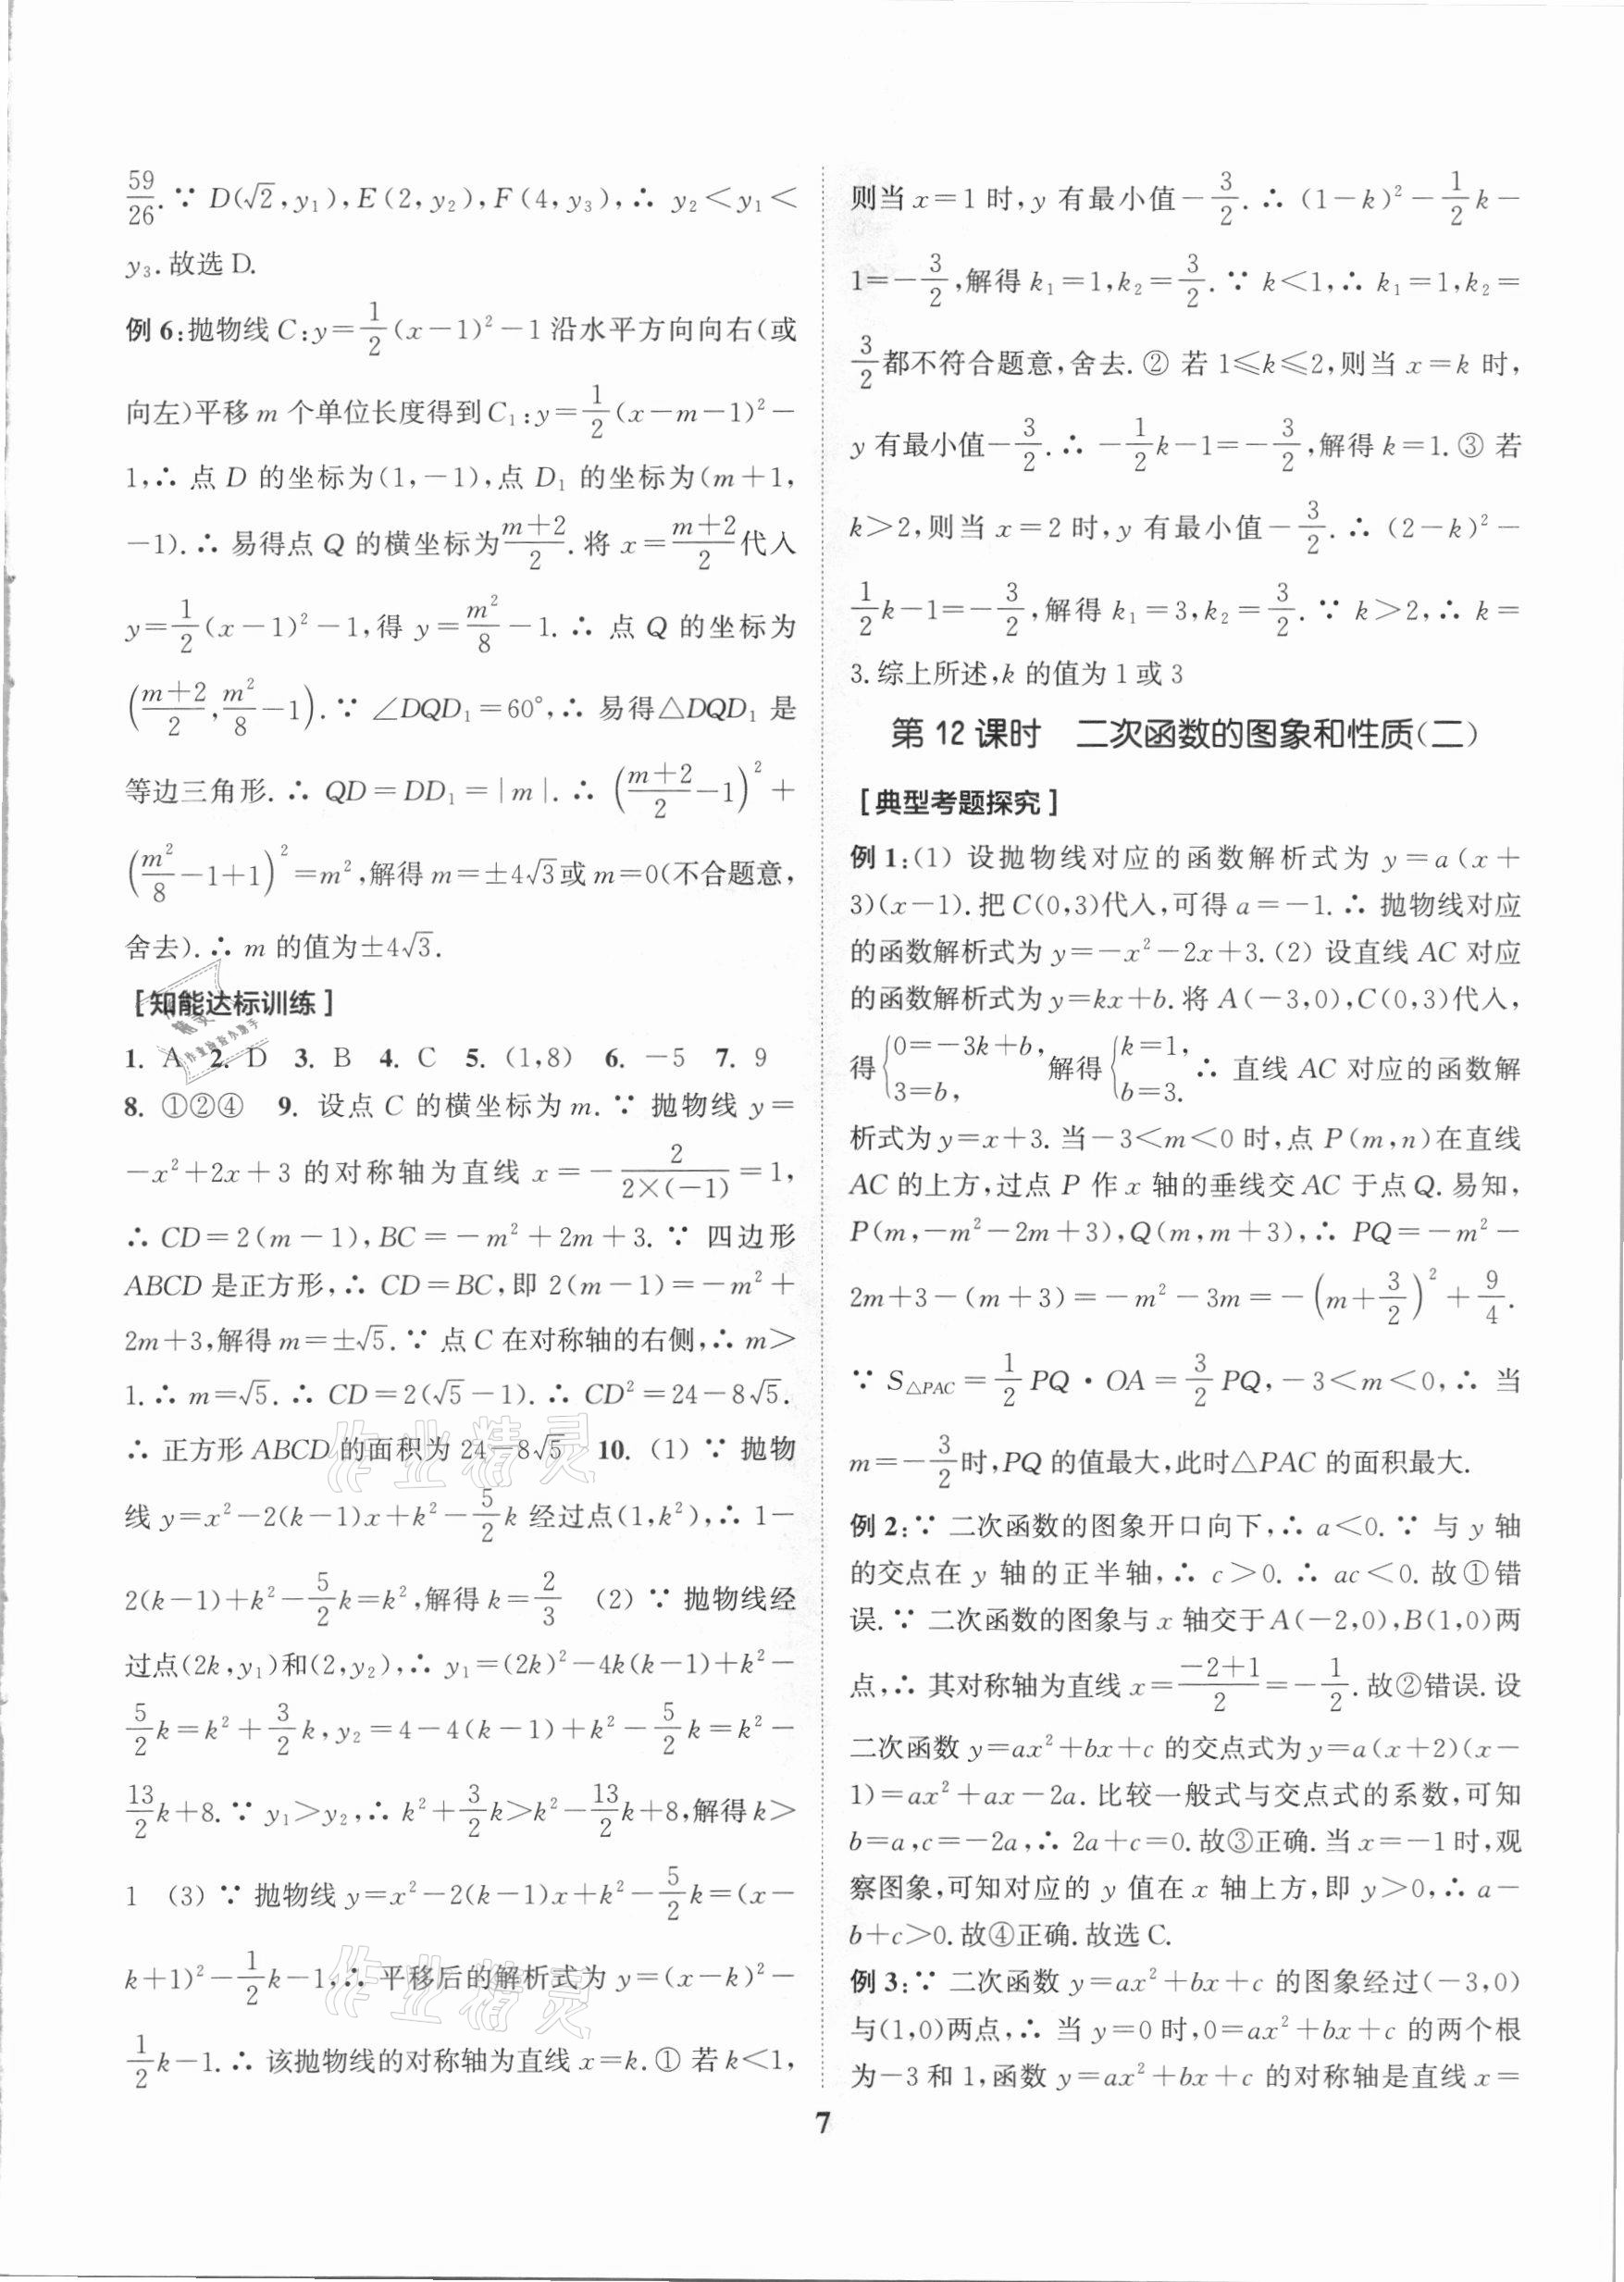 59/26.∵ D(√2,y₁),E(2,y₂),F(4,y₃),∴ y₂<y₁<
y₃.故选D.
例6:抛物线C:y=1/2(x-1)²-1沿水平方向向右(或
向左)平移 m 个单位长度得到C₁:y=1/2(x-m-1)²-
1,∴ 点 D 的坐标为(1,-1),点 D₁ 的坐标为(m+1,
-1).∴ 易得点 Q 的横坐标为(m+2)/2.将 x=(m+2)/2代入
y=1/2(x-1)²-1,得 y=m²/8-1.∴ 点 Q 的坐标为
((m+2)/2,m²/8-1).∵ ∠DQD₁=60°,∴ 易得△DQD₁ 是
等边三角形.∴ QD=DD₁=|m|.∴ ((m+2)/2-1)²+
(m²/8-1+1)²=m²,解得m=±4√3或m=0(不合题意,
舍去).∴ m 的值为±4√3.
[知能达标训练]
1. A 2. D 3. B 4. C 5. (1,8) 6. -5 7. 9
8. ①②④ 9. 设点 C 的横坐标为 m.∵ 抛物线 y=
-x²+2x+3 的对称轴为直线 x=-2/(2×(-1))=1,
∴ CD=2(m-1),BC=-m²+2m+3.∵ 四边形
ABCD 是正方形,∴ CD=BC,即 2(m-1)=-m²+
2m+3,解得m=±√5.∵ 点C在对称轴的右侧,∴ m>
1.∴ m=√5.∴ CD=2(√5-1).∴ CD²=24-8√5.
∴ 正方形 ABCD 的面积为 24-8√5 10. (1) ∵ 抛物
线 y=x²-2(k-1)x+k²-5/2k 经过点(1,k²),∴ 1-
2(k-1)+k²-5/2k=k²,解得 k=2/3 (2) ∵ 抛物线经
过点(2k,y₁)和(2,y₂),∴ y₁=(2k)²-4k(k-1)+k²-
5/2k=k²+3/2k,y₂=4-4(k-1)+k²-5/2k=k²-
13/2k+8.∵ y₁>y₂,∴ k²+3/2k>k²-13/2k+8,解得 k>
1 (3) ∵ 抛物线 y=x²-2(k-1)x+k²-5/2k=(x-
k+1)²-1/2k-1,∴ 平移后的解析式为 y=(x-k)²-
1/2k-1.∴ 该抛物线的对称轴为直线 x=k.① 若 k<1,
则当 x=1 时,y 有最小值-3/2.∴ (1-k)²-1/2k-
1=-3/2,解得 k₁=1,k₂=3/2.∵ k<1,∴ k₁=1,k₂=
3/2都不符合题意,舍去.② 若 1≤k≤2,则当 x=k 时,
y 有最小值-3/2.∴ -1/2k-1=-3/2,解得 k=1.③ 若
k>2,则当 x=2 时,y 有最小值-3/2.∴ (2-k)²-
1/2k-1=-3/2,解得 k₁=3,k₂=3/2.∵ k>2,∴ k=
3.综上所述,k 的值为 1 或 3
第12课时 二次函数的图象和性质(二)
[典型考题探究]
例1:(1) 设抛物线对应的函数解析式为 y=a(x+
3)(x-1).把C(0,3)代入,可得 a=-1.∴ 抛物线对应
的函数解析式为 y=-x²-2x+3.(2) 设直线 AC 对应
的函数解析式为 y=kx+b.将 A(-3,0),C(0,3)代入,
得{0=-3k+b, 3=b, 解得{k=1, b=3. ∴ 直线 AC 对应的函数解
析式为 y=x+3.当-3<m<0 时,点 P(m,n)在直线
AC 的上方,过点 P 作 x 轴的垂线交 AC 于点Q.易知,
P(m,-m²-2m+3),Q(m,m+3),∴ PQ=-m²-
2m+3-(m+3)=-m²-3m=-(m+3/2)²+9/4.
∵ S△PAC=1/2PQ·OA=3/2PQ,-3<m<0,∴ 当
m=-3/2时,PQ 的值最大,此时△PAC 的面积最大.
例2:∵ 二次函数的图象开口向下,∴ a<0.∵ 与 y 轴
的交点在 y 轴的正半轴,∴ c>0.∴ ac<0.故①错
误.∵ 二次函数的图象与 x 轴交于 A(-2,0),B(1,0)两
点,∴ 其对称轴为直线 x=(-2+1)/2=-1/2.故②错误.设
二次函数 y=ax²+bx+c 的交点式为 y=a(x+2)(x-
1)=ax²+ax-2a.比较一般式与交点式的系数,可知
b=a,c=-2a,∴ 2a+c=0.故③正确.当 x=-1时,观
察图象,可知对应的 y 值在 x 轴上方,即 y>0,∴ a-
b+c>0.故④正确.故选C.
例3:∵ 二次函数 y=ax²+bx+c 的图象经过(-3,0)
与(1,0)两点,∴ 当 y=0 时,0=ax²+bx+c 的两个根
为-3 和 1,函数 y=ax²+bx+c 的对称轴是直线 x=
7
作业精灵
作业精灵